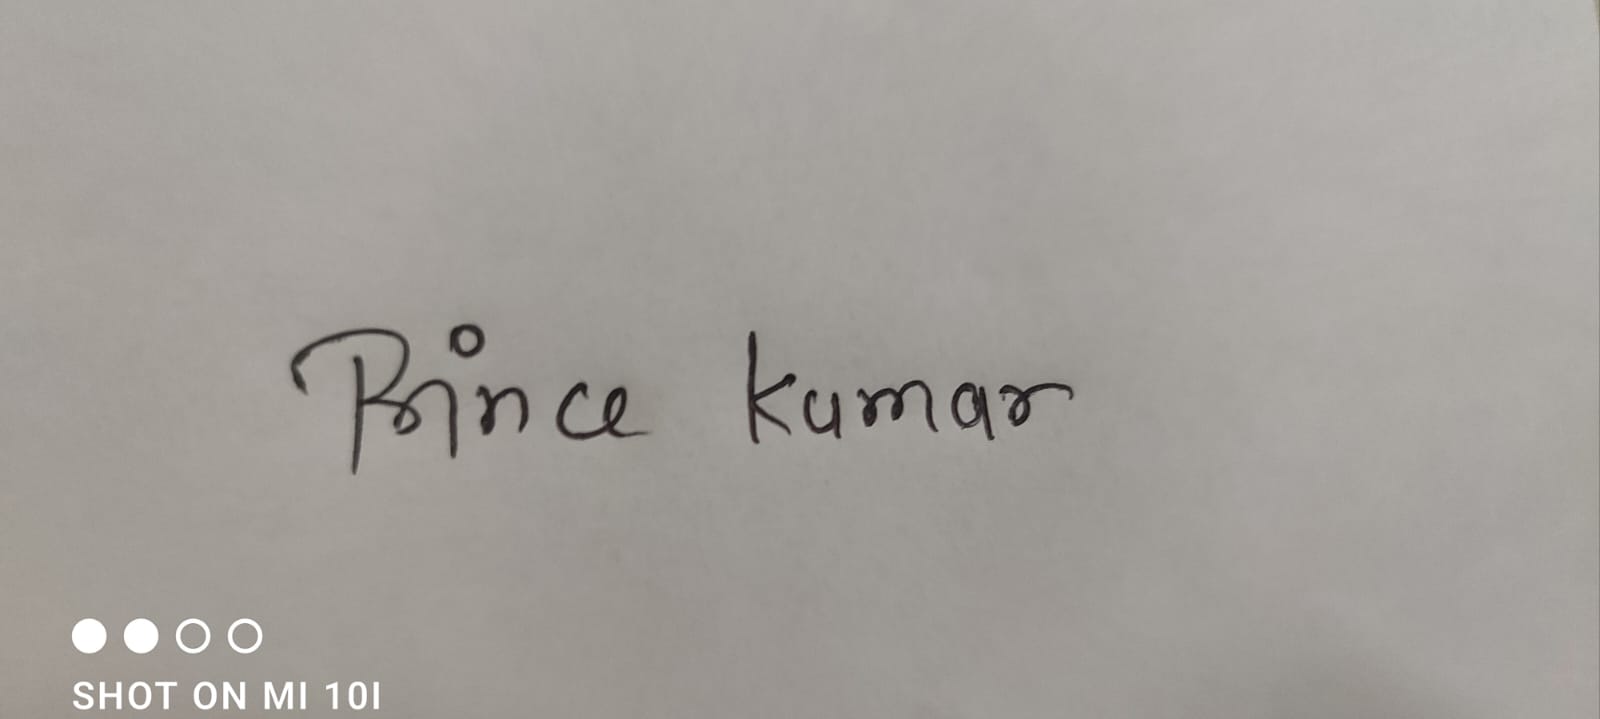 Prince Kumar
SHOT ON MI 10I